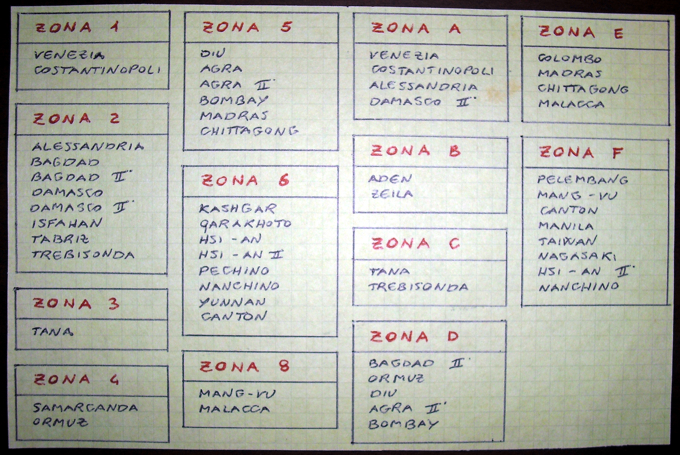 ZONA 1
VENEZIA
COSTANTINOPOLI
ZONA 2
ALESSANDRIA
BAGDAD
BAGDAD II°
DAMASCO
DAMASCO II°
ISFAHAN
TABRIZ
TREBISONDA
ZONA 3
TANA
ZONA 4
SAMARCANDA
ORMUZ
ZONA 5
DIU
AGRA
AGRA II°
BOMBAY
MADRAS
CHITTAGONG
ZONA 6
KASHGAR
QARAKHOTO
HSI - AN
HSI - AN II
PECHINO
NANCHINO
YUNNAN
CANTON
ZONA 8
MANG-VU
MALACCA
ZONA A
VENEZIA
COSTANTINOPOLI
ALESSANDRIA
DAMASCO II°
ZONA B
ADEN
ZEILA
ZONA C
TANA
TREBISONDA
ZONA D
BAGDAD II°
ORMUZ
DIU
AGRA II°
BOMBAY
ZONA E
COLOMBO
MADRAS
CHITTAGONG
MALACCA
ZONA F
PELEMBANG
MANG-VU
CANTON
MANILA
TAIWAN
NAGASAKI
HSI - AN II°
NANCHINO